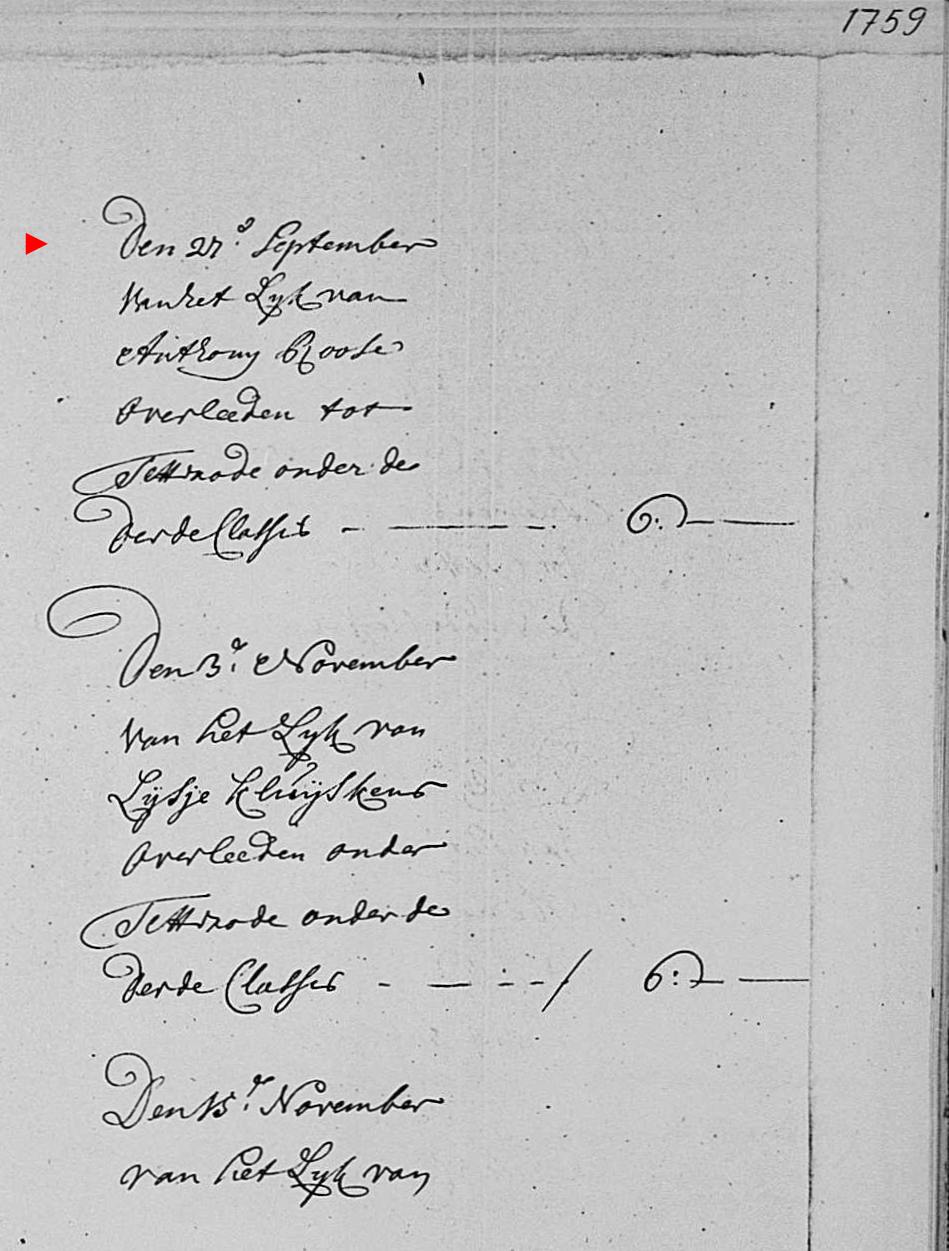 1759
Den 27.e September
Van het Lyk van
Anthony Roose
Overleeden tot
Tettrode onder de
Derde Classis - ——— - . 6:——
Den 3.e November
Van het Lyk van
Lijsje Kluijskens
Overleeden onder
Tettrode onder de
Derde Classis - — - - - / 6:——
Den 15.e November
van het Lyk van